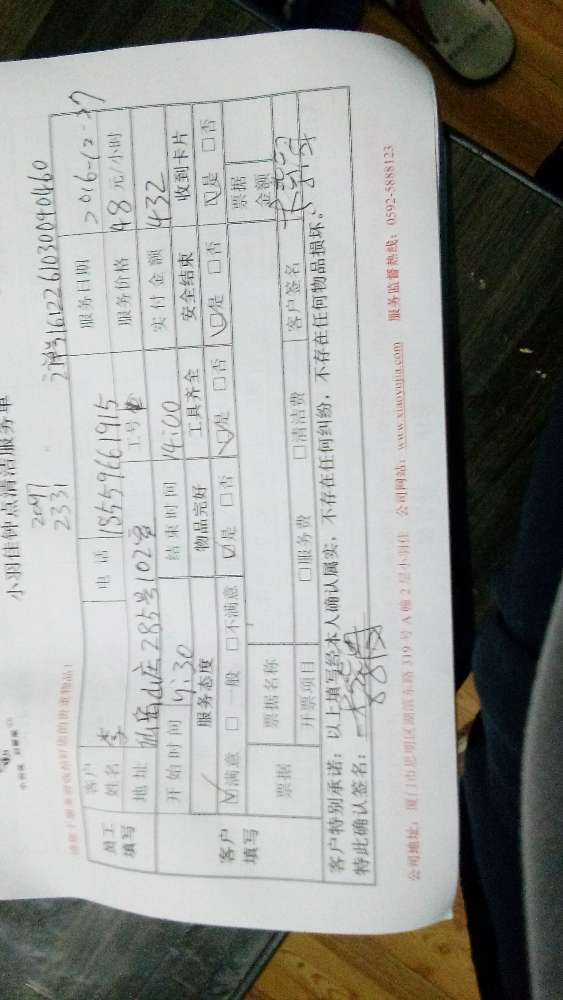 小羽佳钟点清洁服务单
2097
2331
订单号1612261030090460
客户姓名 李 电话 18559661915 服务日期 2016-12-27
地址 285号102室 工号 服务价格 48元/小时
开始时间 9:30 结束时间 14:00 实付金额 432
员工填写
服务态度 物品完好 工具齐全 安全结束 收到卡片
☑满意 □一般 □不满意 ☑是 □否 ☑是 □否 ☑是 □否 ☑是 □否
客户填写
票据 票据名称 票据金额
开票项目 □服务费 □清洁费 客户签名
客户特别承诺：以上填写经本人确认属实，不存在任何纠纷，不存在任何物品损坏。
特此确认签名：
公司地址：厦门市思明区湖滨东路319号A幢2层小羽佳 公司网站：www.xiaoyujia.com 服务监督热线：0592-5888123